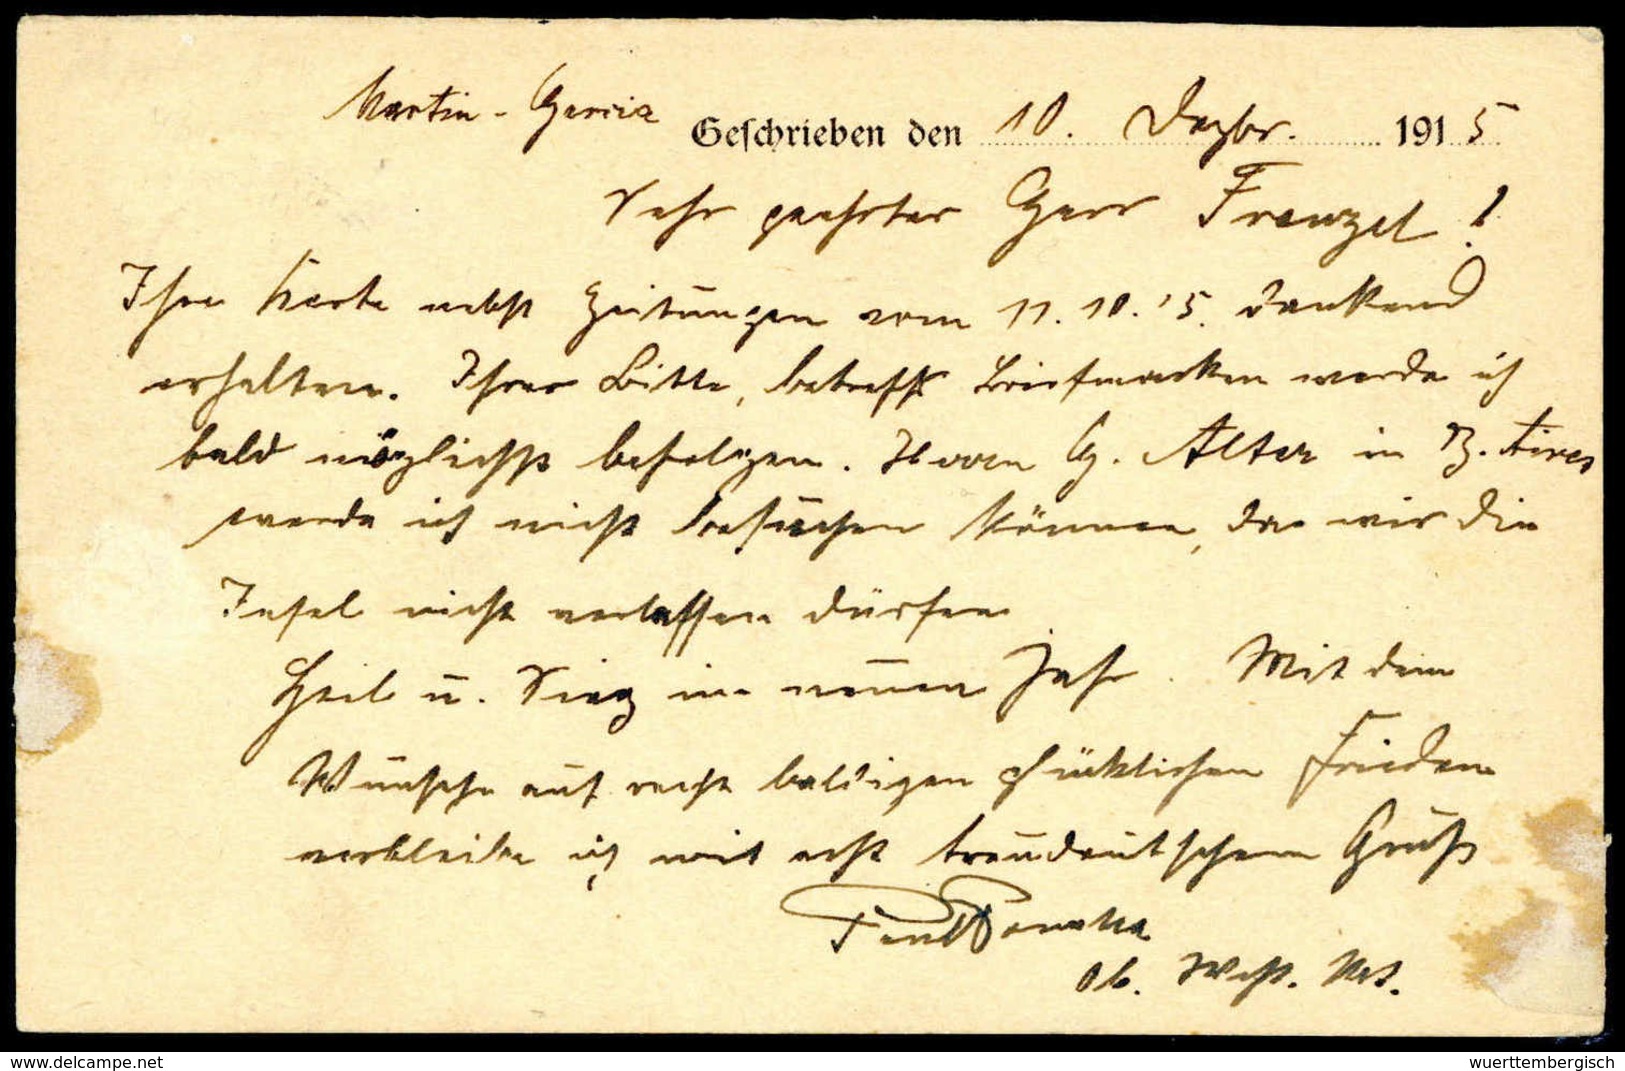 Martin-Garcia Geschrieben den 10. Dezbr. 1915
Sehr geehrter Herr Frenzel!
Ihre Karte nebst Zeitungen vom 11.10.15. dankend
erhalten. Ihrer Bitte, betreff Briefmarken werde ich
bald möglichst befolgen. Herrn G. Alter in B. Aires
werde ich nicht besuchen können, da wir die
Insel nicht verlassen dürfen
Heil u. Sieg im neuen Jahr. Mit dem
Wunsche auf recht baldigen glücklichen Frieden
verbleibe ich mit echt treudeutschem Gruß
Paul
Ob. Mts.
© www.delcampe.net
wuerttembergisch